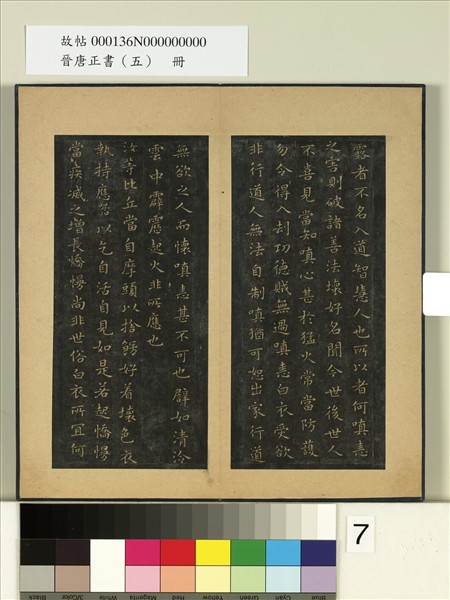 故帖 000136N000000000
晉唐正書（五） 冊
露者不名入道智慧人也所以者何嗔恚
之害則破諸善法壞好名聞今世後世人
不喜見當知嗔心甚於猛火常當防護
勿令得入劫功德賊無過嗔恚白衣受欲
非行道人無法自制嗔猶可恕出家行道
無欲之人而懷嗔恚甚不可也譬如清冷
雲中霹靂起火非所應也
汝等比丘當自摩頭以捨餝好着壞色衣
執持應器以乞自活自見如是若起憍慢
當疾滅之增長憍慢尚非世俗白衣所宜何
7
Black
3/Color
White
Magenta
Red
Yellow
Green
Cyan
Blue